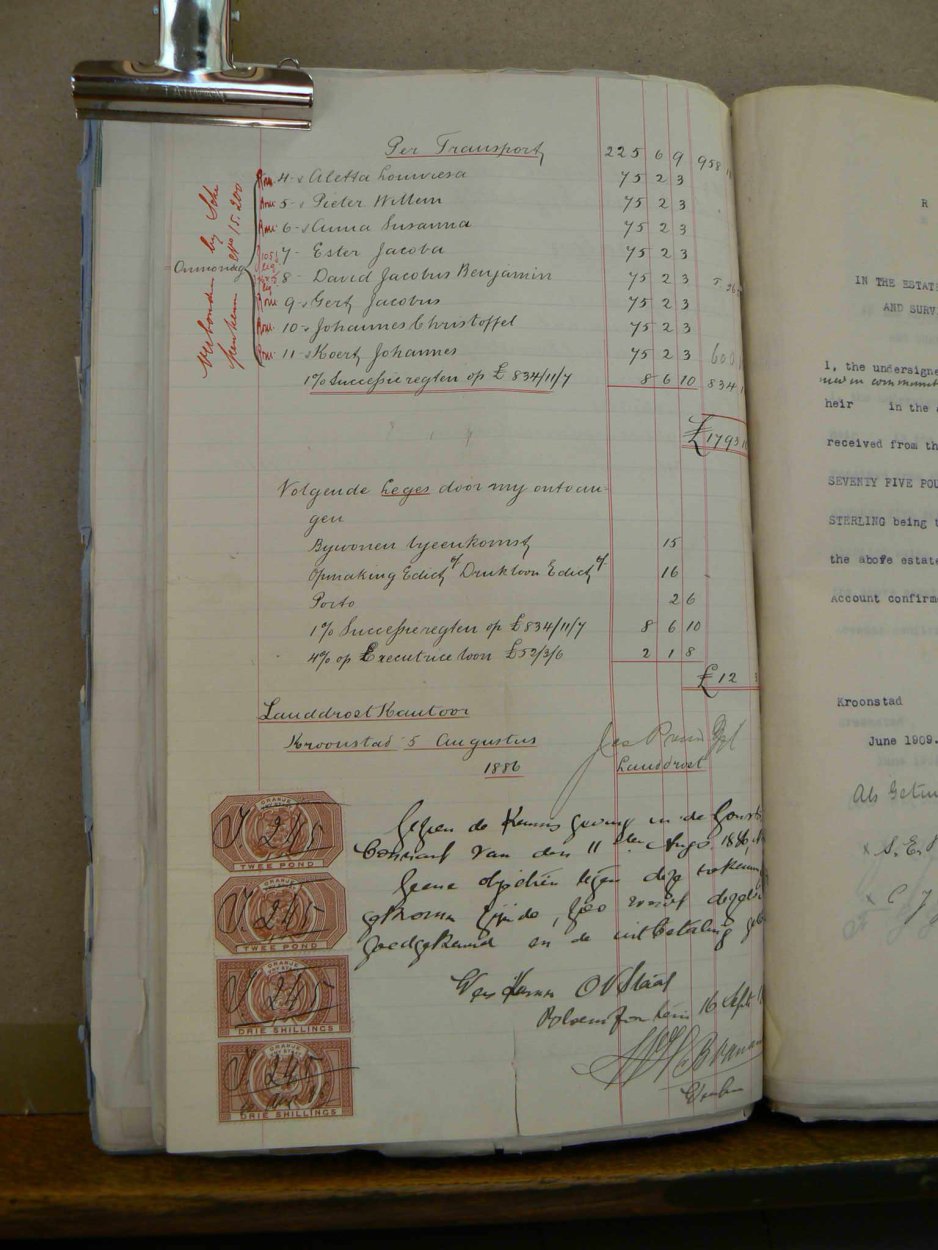 Per Transport 225 6 9 958
4 Aletta Louwiesa 75 2 3
5 Pieter Willem 75 2 3
6 Anna Susanna 75 2 3
7 Ester Jacoba 75 2 3
8 David Jacobus Benjamin 75 2 3
9 Gert Jacobus 75 2 3
10 Johannes Christoffel 75 2 3
11 Koert Johannes 75 2 3 600
1% Successieregten op £834/11/7 8 6 10 834
£1793
Onmondig
Verbonden by
15.200
Volgende Leges door my ontvan-
gen
Bywonen byeenkomst 15
Opmaking Edict Drukloon Edict 16
Porto 2 6
1% Successieregten op £834/11/7 8 6 10
4% op Executrice loon £52/3/6 2 1 8
£12
Landdrost Kantoor
Kroonstad 5 Augustus
1886
Landdrost
Gezien de Kennisgeving in de Gouvts
Courant van den 11 den Augs. 1886,
Geene objectien tegen deze rekening
gekomen zynde,
goedgekeurd en de uitbetaling
Weeskamer OVStaat
Bloemfontein 16 Sept
ORANJE
245
TWEE POND
ORANJE
245
TWEE POND
ORANJE
VRY STAAT
245
DRIE SHILLINGS
ORANJE
VRY STAAT
245
DRIE SHILLINGS
R
IN THE ESTATE
AND SURV
I, the undersigne
heir in the
received from th
SEVENTY FIVE POU
STERLING being t
the above estate
Account confirme
Kroonstad
June 1909.
Als Getui